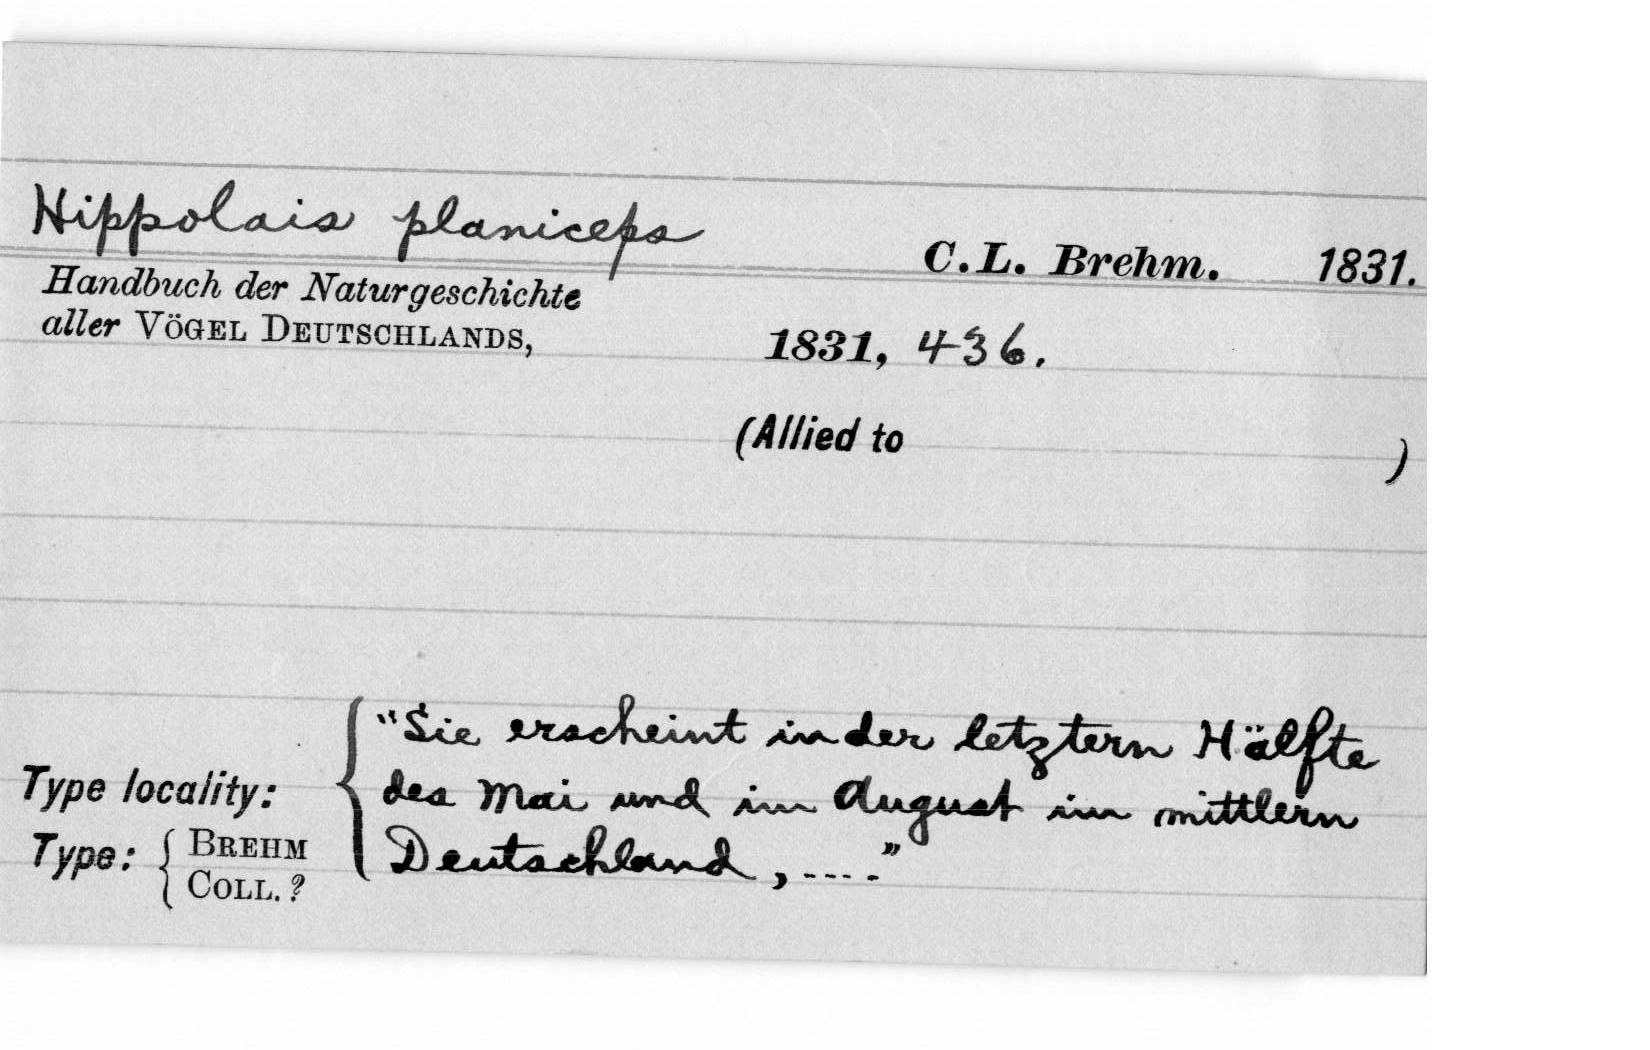 Hippolais planiceps C.L. Brehm. 1831.
Handbuch der Naturgeschichte
aller VÖGEL DEUTSCHLANDS, 1831, 436.
(Allied to )
"Sie erscheint in der letztern Hälfte
Type locality: des Mai und im August im mittlern
Type: { BREHM Deutschland, ...."
COLL. ?